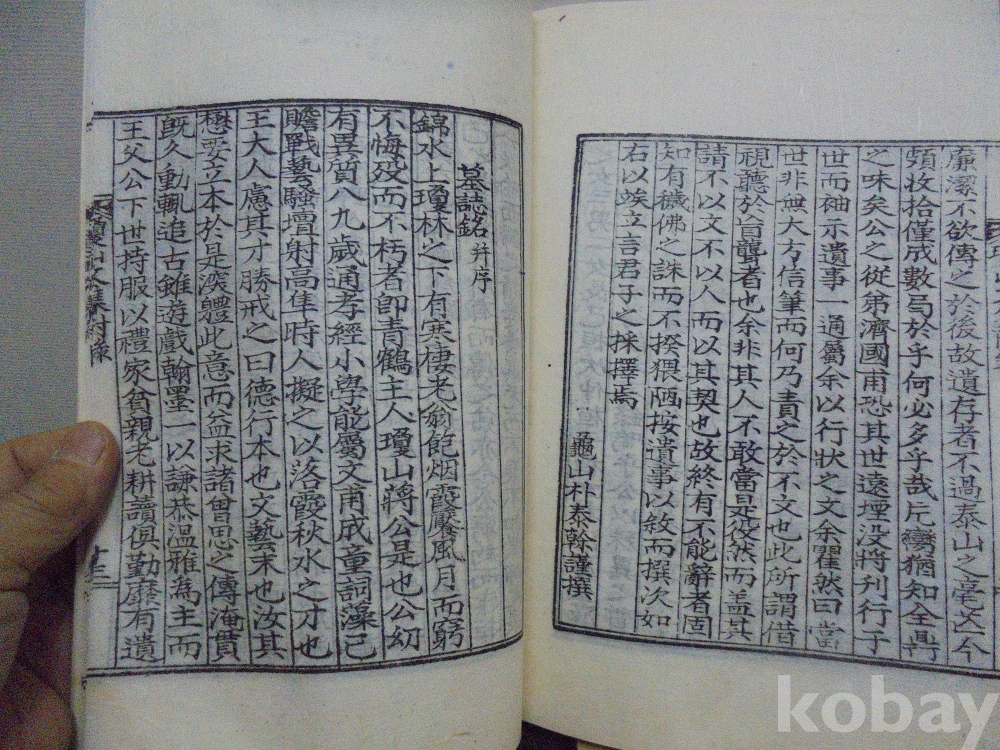 廉潔不欲傳之於後故遺存者不過泰山之毫芒今
頻收拾僅成數弓於乎何必多乎哉片臠猶知全鼎
之味矣公之從弟濟國甫恐其世遠埋没將刊行于
世而砷示遺事一通屬余以行狀之文余瞿然曰當
世非無大方信筆而何乃責之於不文也此所謂借
視聽於盲聾者也余非其人不敢當是役然而盖其
請不以文不以人而以其契也故終有不能辭者固
知有穢佛之誅而不揆猥陋按遺事以敘而撰次如
右以竢立言君子之採擇焉
龜山朴泰榦謹撰
墓誌銘 幷序
錦水上瓊林之下有寒棲老翁飽烟霞廢風月而窮
不悔殁而不朽者即青鶴主人瓊山蔣公是也公幼
有異質八九歲通孝經小學能屬文甫成童詞藻已
贍戰藝騷壇射高隼時人擬之以落霞秋水之才也
王大人慮其才勝戒之曰德行本也文藝末也汝其
懋要立本於是深軆此意而益求諸曾思之傳淹貫
既久動輒追古雖遊戲翰墨一以謙恭溫雅爲主而
王父公下世持服以禮家貧親老耕讀俱勤靡有遺
瓊山文集附錄
十三
kobay